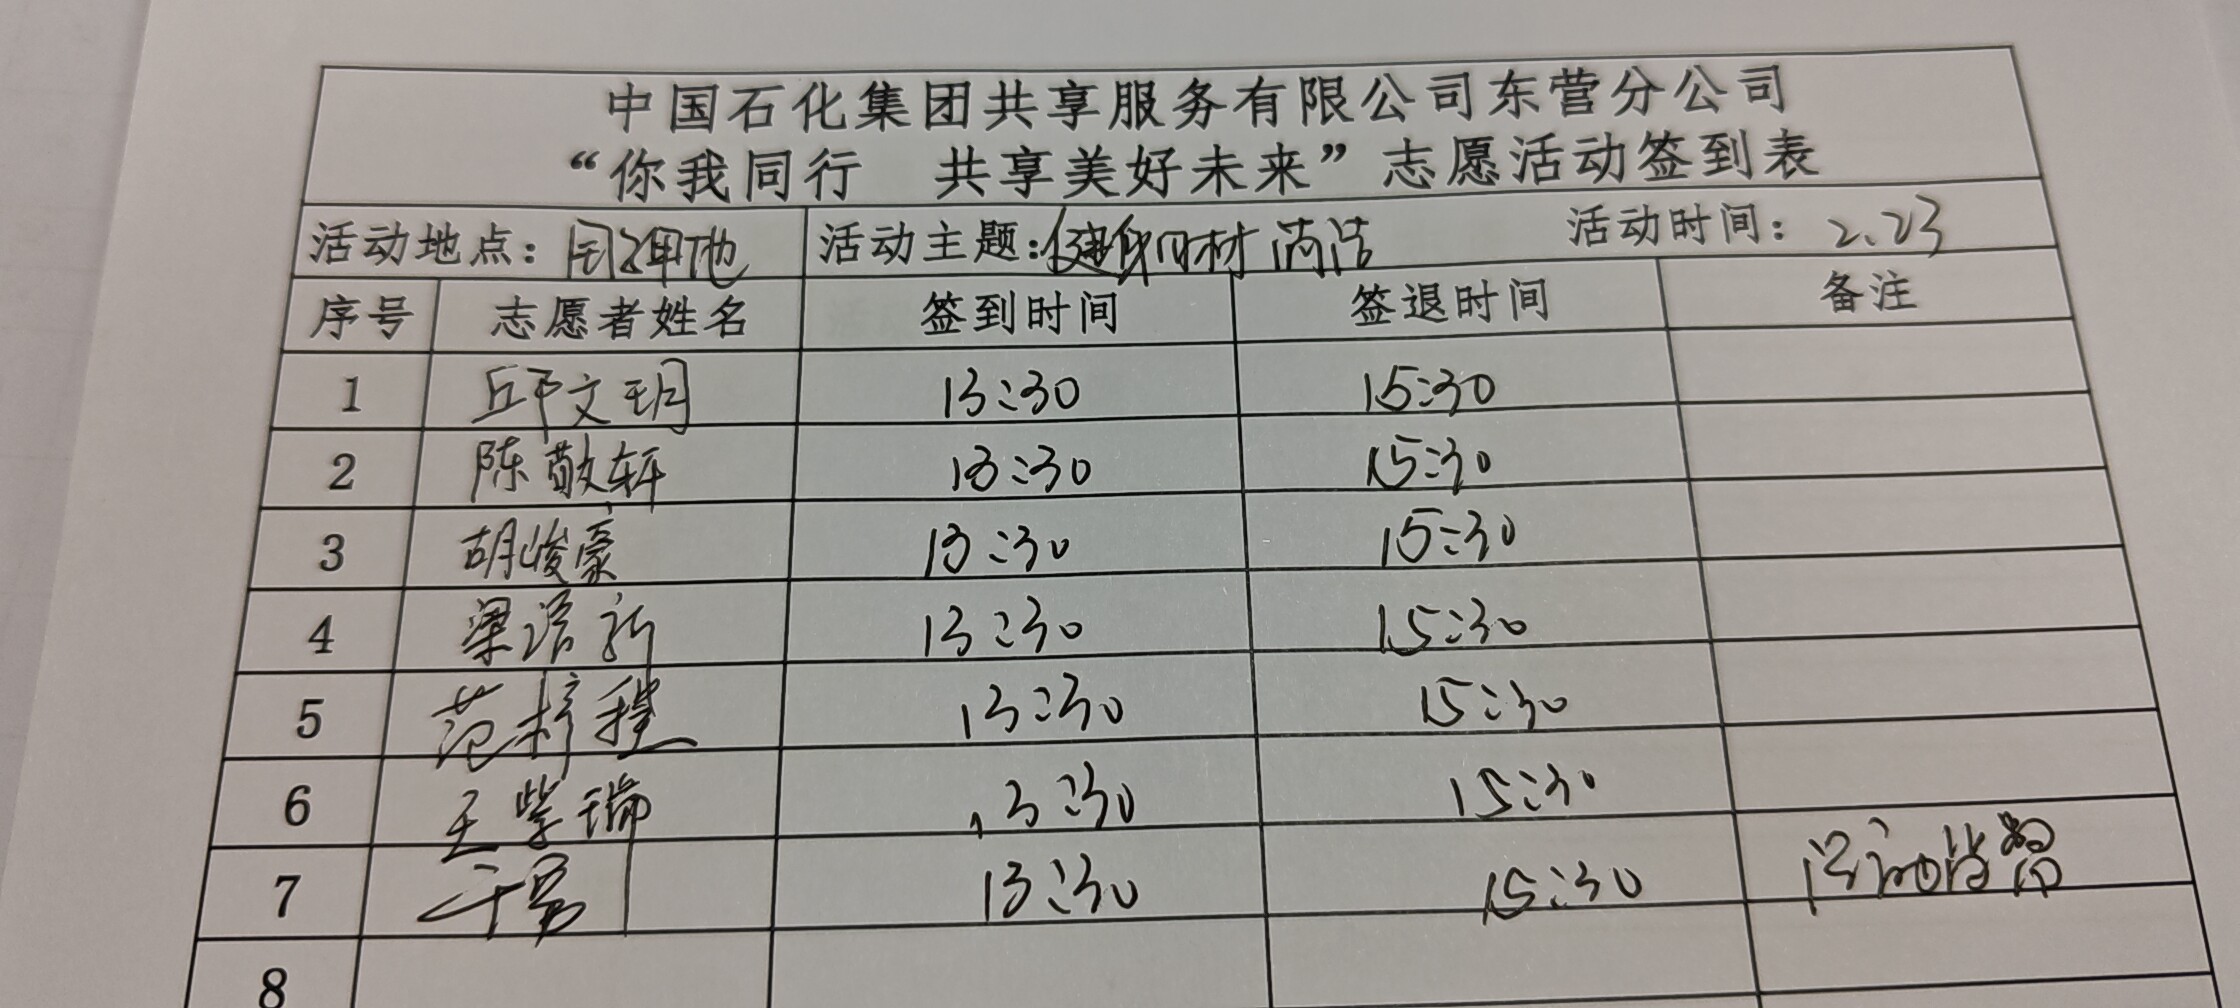 中国石化集团共享服务有限公司东营分公司
“你我同行 共享美好未来”志愿活动签到表
活动地点： 活动主题：健身 清洁 活动时间：2.23
序号 志愿者姓名 签到时间 签退时间 备注
1 邱文玥 13:30 15:30
2 陈敬轩 13:30 15:30
3 胡峻豪 13:30 15:30
4 梁 新 13:30 15:30
5 范梓程 13:30 15:30
6 王紫瑞 13:30 15:30
7 13:30 15:30
8